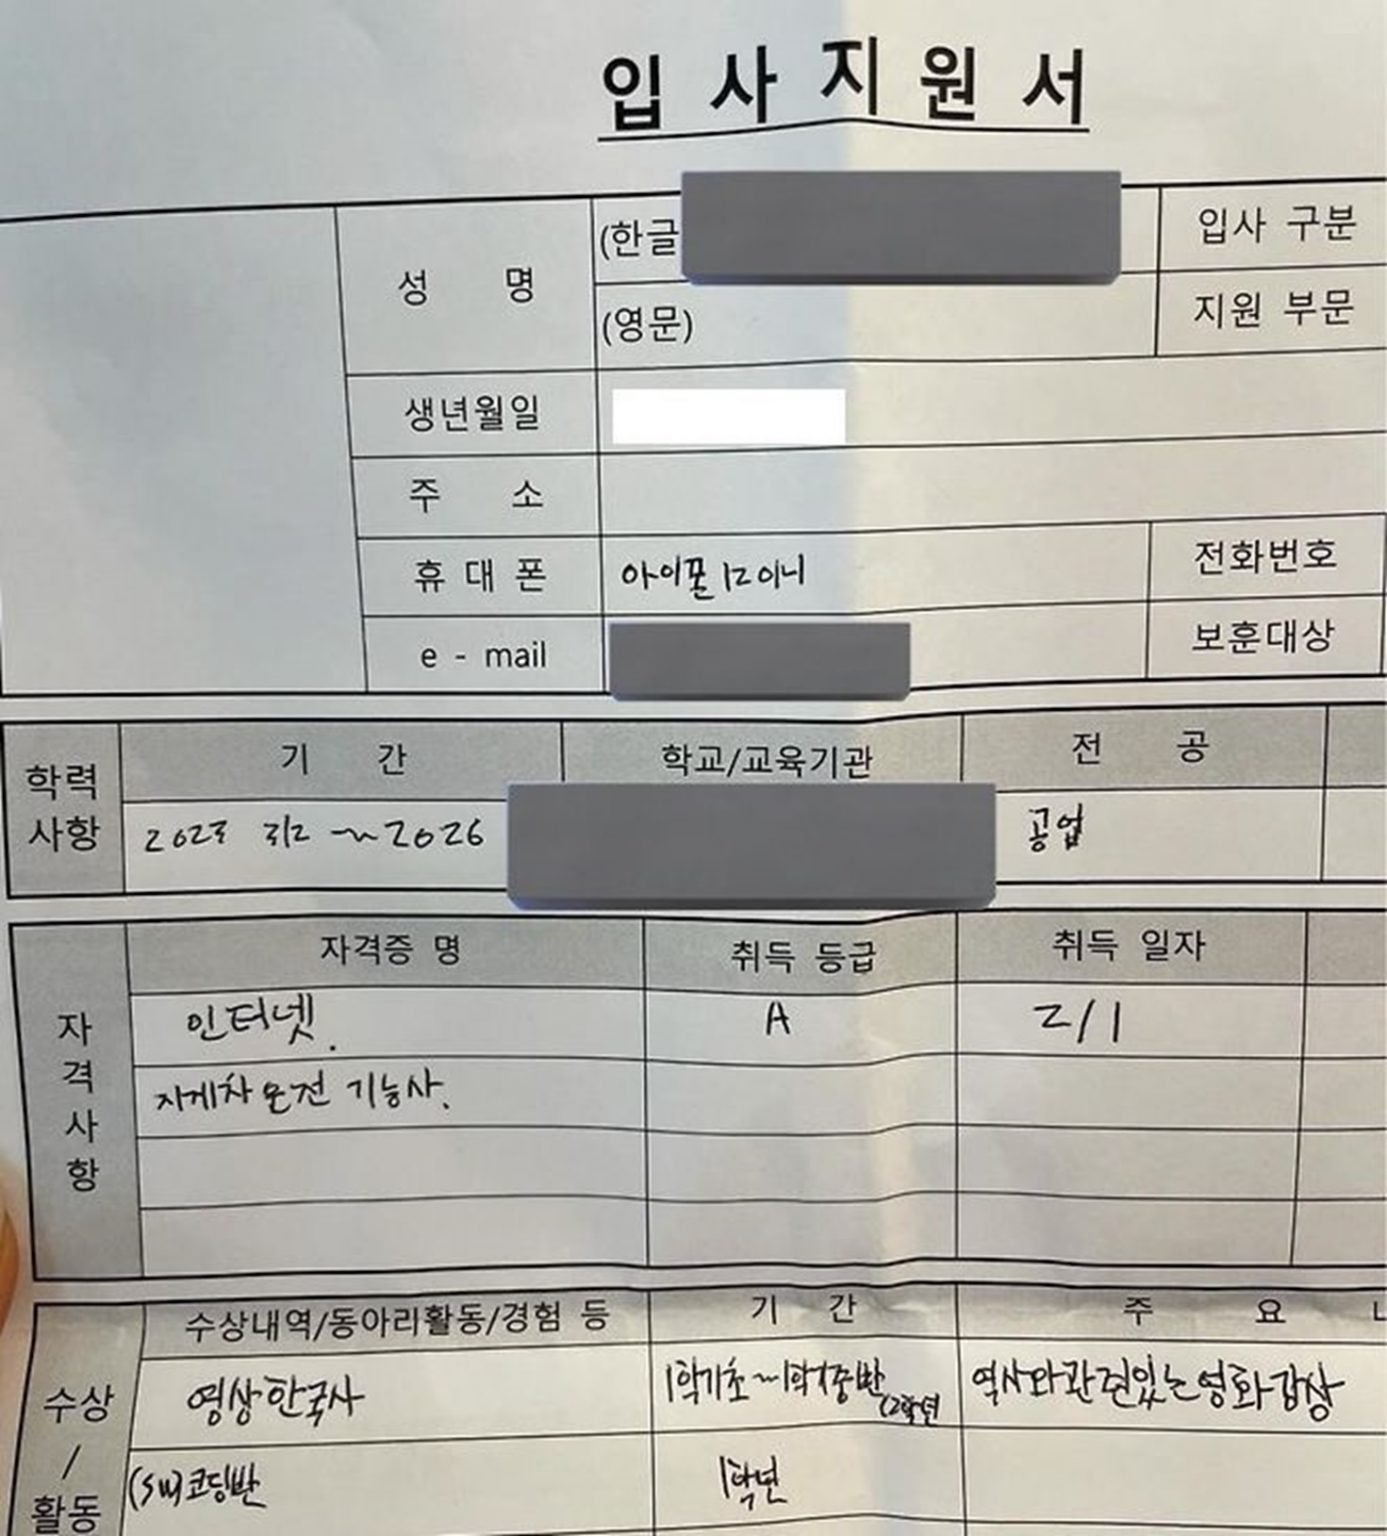 입사지원서
성 명 (한글 입사 구분
(영문) 지원 부문
생년월일
주 소
휴대폰 아이폰12이니 전화번호
e - mail 보훈대상
학력사항 기 간 학교/교육기관 전 공
2023 3/2 ~ 2026 공업
자격사항 자격증 명 취득 등급 취득 일자
인터넷. A 2/1
지게차운전 기능사.
수상/활동 수상내역/동아리활동/경험 등 기 간 주 요
영상한국사 1학기초~1학기중반 (2학년 역사와관련있는영화감상
(SW)코딩반 1학년